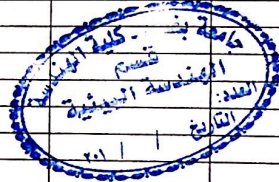 جامعة بنـ - كلية الهندسة
قسم
الهندسة البيئية
العدد:
التاريخ / / ٢٠١